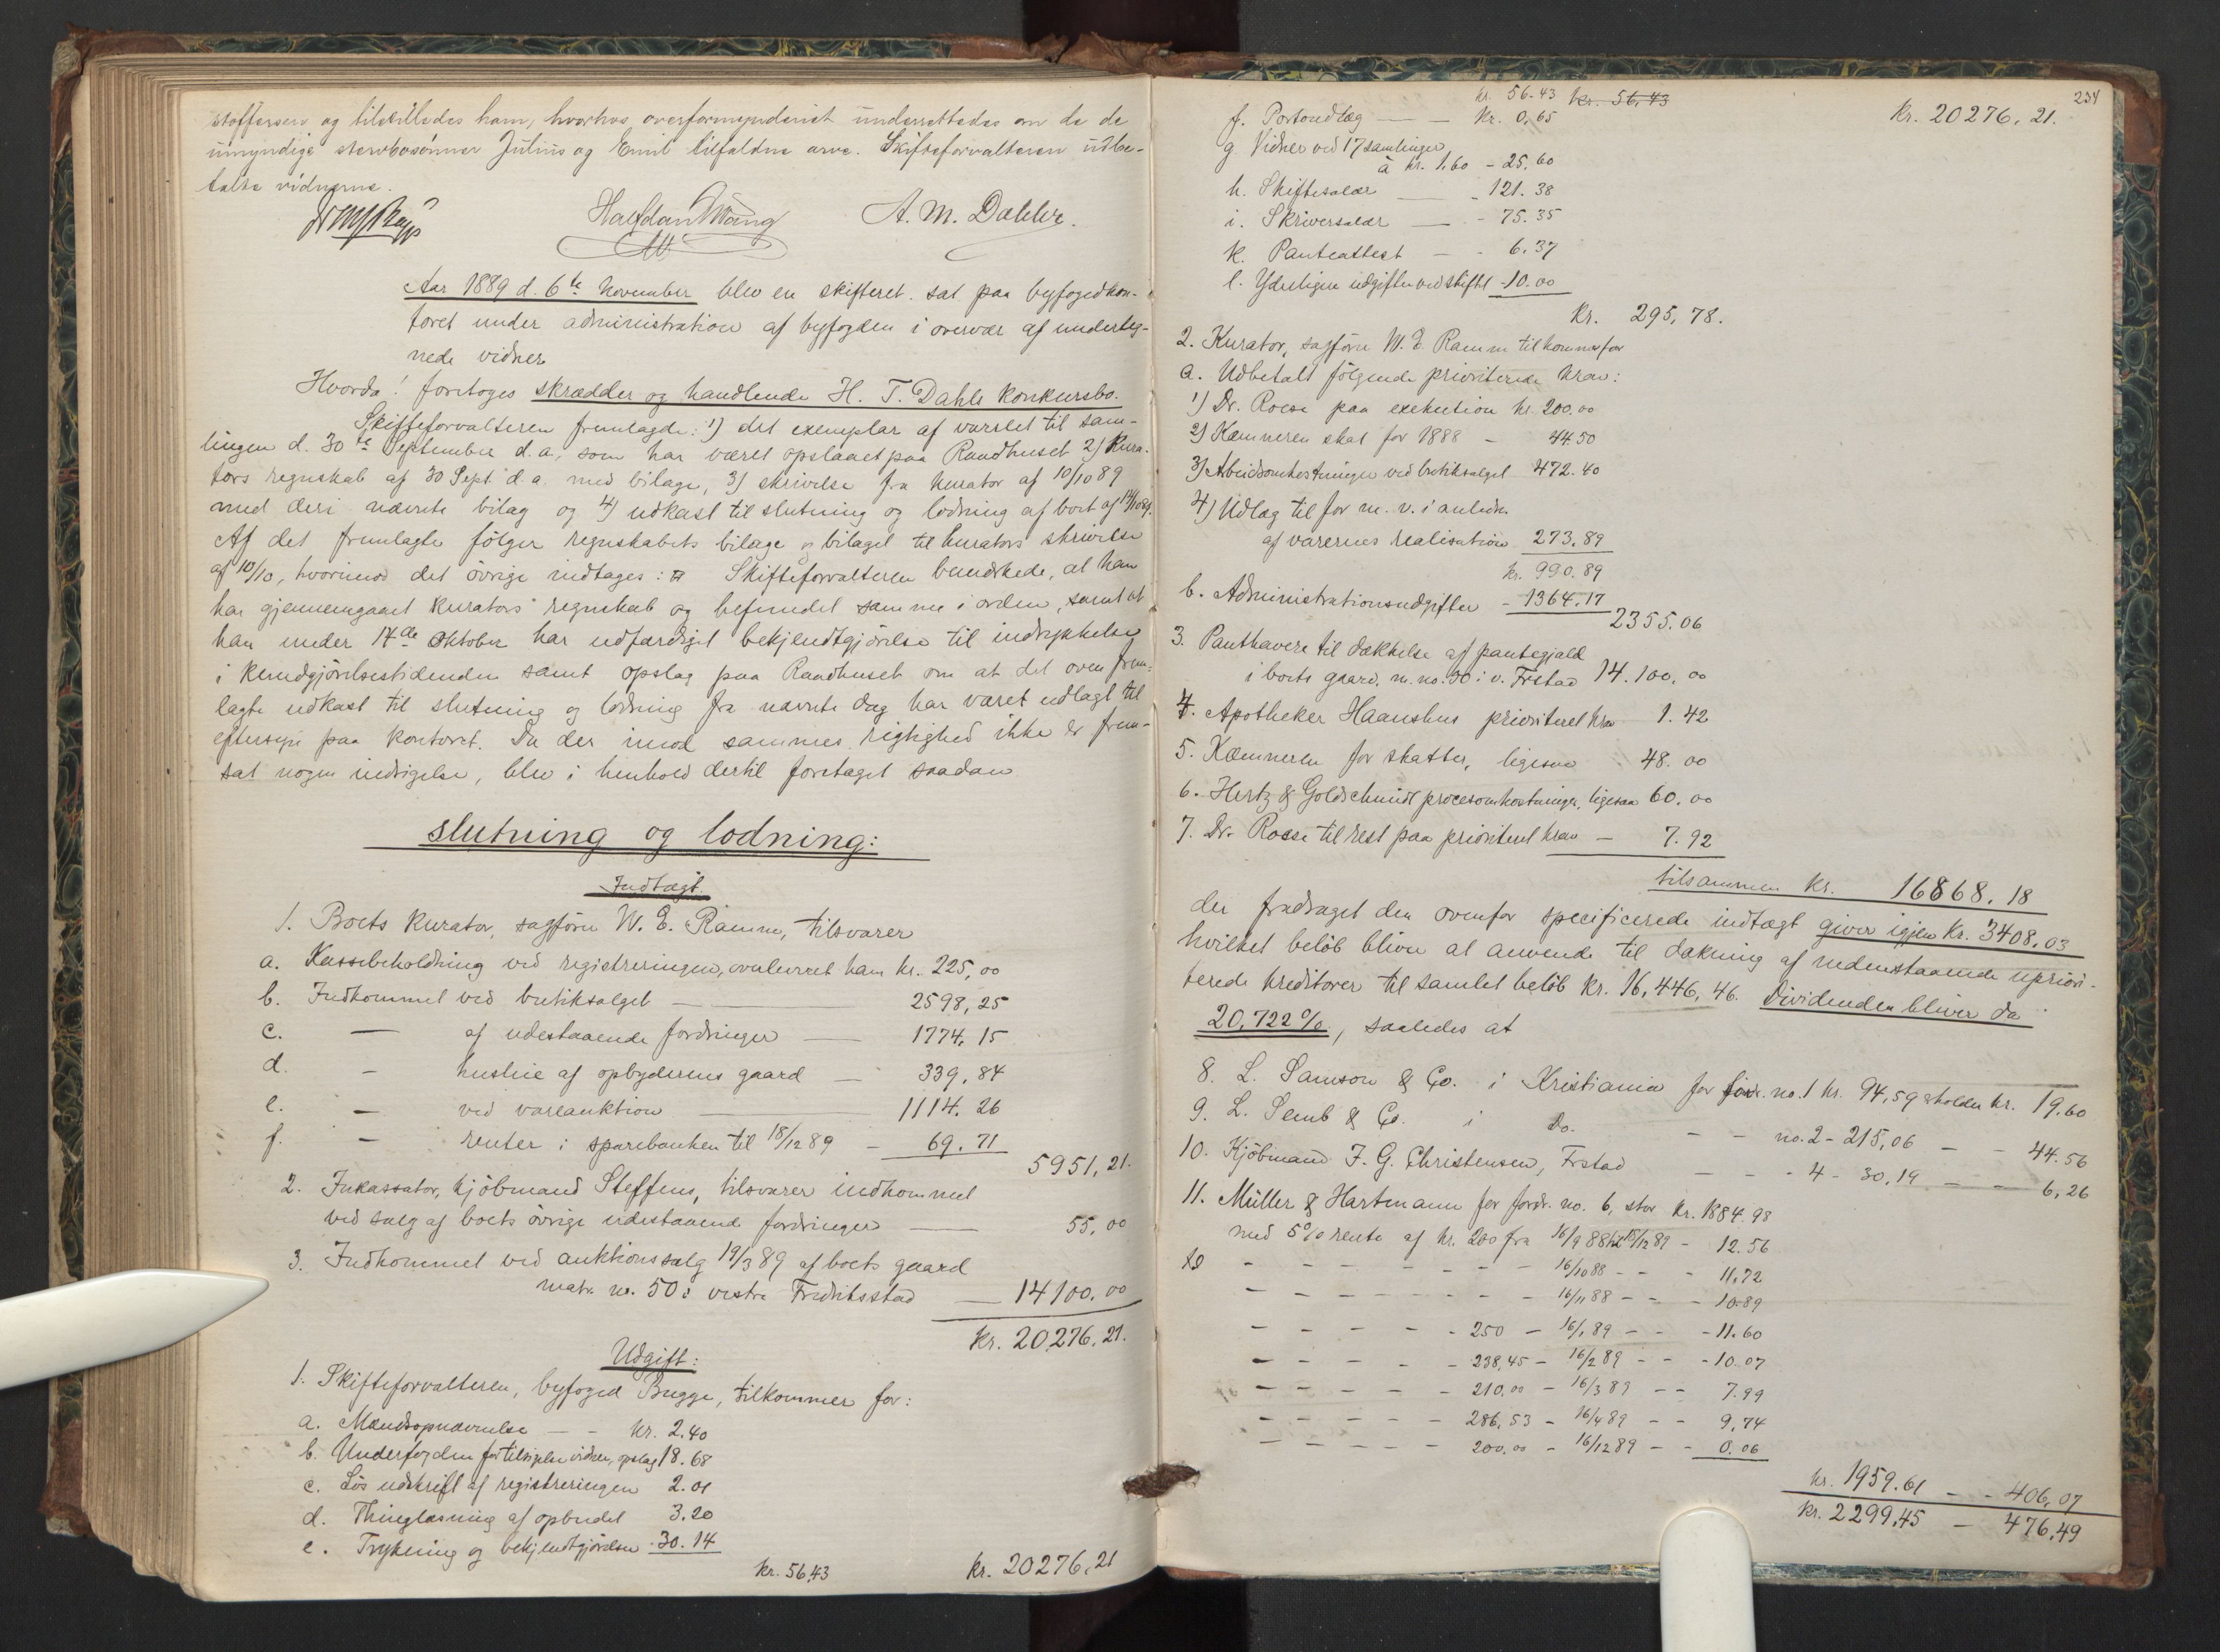 stoffersen og tilstilledes ham, hvorhos overformynderiet underrettedes om de de
umyndige stervbosønner Julius og Emil tilfaldne arve. Skifteforvalteren udbe-
talte vidnerne.
Halfdan Wang A. M. Dahler.
Aar 1889 d. 6te November blev en skifteret sat paa byfogedkon-
toret under administration af byfogden i overvær af underteg-
nede vidner
Hvorda! foretoges skrædder og handlende H. T. Dahls konkursbo.
Skifteforvalteren fremlagde: 1) det exemplar af varslet til sam-
lingen d. 30te September d. a., som har været opslaaet paa Raadhuset 2) Kura-
tors regnskab af 30 Sept. d. a. med bilage, 3) skrivelse fra kurator af 10/10 89
med deri nævnte bilag og 4) udkast til slutning og lodning af boet af 14/10 89.
Af det fremlagte følger regnskabets bilage og bilaget til kurators skrivelse
af 10/10, hvorimod det övrige indtages: Skifteforvalteren bemærkede, at han
har gjennemgaaet kurators regnskab og befundet samme i orden, samt at
han under 14de Oktober har udfærdiget bekjendtgjörelse til indrykkelse
i Kundgjörelsestidenden samt opslag paa Raadhuset om at det oven frem-
lagte udkast til slutning og lodning fra nævnte dag har været udlagt til
eftersyn paa kontoret. Da der imod sammes rigtighed ikke er frem-
sat nogen indsigelse, blev i henhold dertil foretaget saadan
slutning og lodning:
Indtægt.
1. Boets kurator, sagförer W. E. Ramm, tilsvarer
a. Kassebeholdning ved registreringen, overleveret ham kr. 225,00
b. Indkommet ved butiksalget — 2598,25
c. — af udestaaende fordringer — 1774,15
d. - husleie af opbyderens gaard — 339,84
e. - ved vareauktion — 1114.26
f. - renter i sparebanken til 18/12 89 - 69.71
5951,21.
2. Inkassator, kjöbmand Steffens, tilsvarer indkommet
ved salg af boets övrige udestaaende fordringer — 55,00
3. Indkommet ved auktionssalg 19/3 89 af boets gaard
matr. no. 50 i vestre Fredriksstad — 14100.00
kr. 20,276,21.
Udgift:
1. Skifteforvalteren, byfoged Bugge, tilkommer for:
a. Mændsopnævnelse — - kr. 2.40
b. Underfogden for tilsigelse vidner, opslag 18.68
c. Lös udskrift af registreringen 2.01
d. Thinglæsning af opbudet 3.20
e. Trykning og bekjendtgjörelse 30.14
kr. 56,43 kr. 20276,21
234
kr. 56.43 kr. 56,43 kr. 20276,21.
f. Portoudlæg — - kr. 0,65
g. Vidner ved 17 samlinger
à kr. 1,60 - 25.60
h. Skiftesalær — - 121.38
i. Skriversalær — - 75.35
k. Panteattest — - 6.37
l. Yderligere udgifter ved skiftet - 10.00
kr. 295,78.
2. Kurator, sagförer W. E. Ramm tilkommer for
a. Udbetalt fölgende prioriterede krav:
1) Dr. Roese paa exekution kr. 200.00
2) Kæmneren skat for 1888 - 44.50
3) Arbeidsomkostninger ved butiksalget 472.40
4) Udlæg til för m. v. i anledn.
af varernes realisation 273.89
kr. 990.89
b. Administrationsudgifter - 1364.17
2355.06
3. Panthavere til dækkelse af pantegjæld
i boets gaard, m. no. 50 i v. Frstad 14.100,00
4. Apotheker Haanshus prioriteret krav 1.42
5. Kæmneren for skatter, ligesaa 48.00
6. Hertz & Goldschmidt procesomkostninger, ligesaa 60.00
7. Dr. Roese til rest paa prioriteret krav — 7.92
tilsammen kr. 16868.18
der fradraget den ovenfor specificerede indtægt giver igjen kr. 3408,03
hvilket belöb bliver at anvende til dækning af nedenstaaende upriori-
terede kreditorer til samlet belöb kr. 16,446,46. Dividenden bliver da
20,722 %, saaledes at
8. L. Samson & Co. i Kristiania for fordr. no. 1 kr. 94,59 erholder kr. 19.60
9. L. Semb & Co. i Do. - - no. 2 - 215,06 - - 44.56
10. Kjöbmand J. G. Christensen, Frstad - - - 4 - 30,19 - - 6,26
11. Müller & Hartmann for fordr. no. 6, stor kr. 1884.98
med 5% rente af kr. 200 fra 16/9 88 til 18/12 89 - 12.56
- - - - - - - 16/10 88 - - - 11,72
- - - - - - - 16/11 88 - - - 10.89
- - - - - 250 - 16/1 89 - - - 11.60
- - - - - 238,45 - 16/2 89 - - - 10.07
- - - - - 210.00 - 16/3 89 - - 7.99
- - - - - 286,53 - 16/4 89 - - 9,74
- - - - - 200.00 - 16/12 89 - - 0.06
kr. 1959.61 - - 406,07
kr. 2299,45 - 476,49